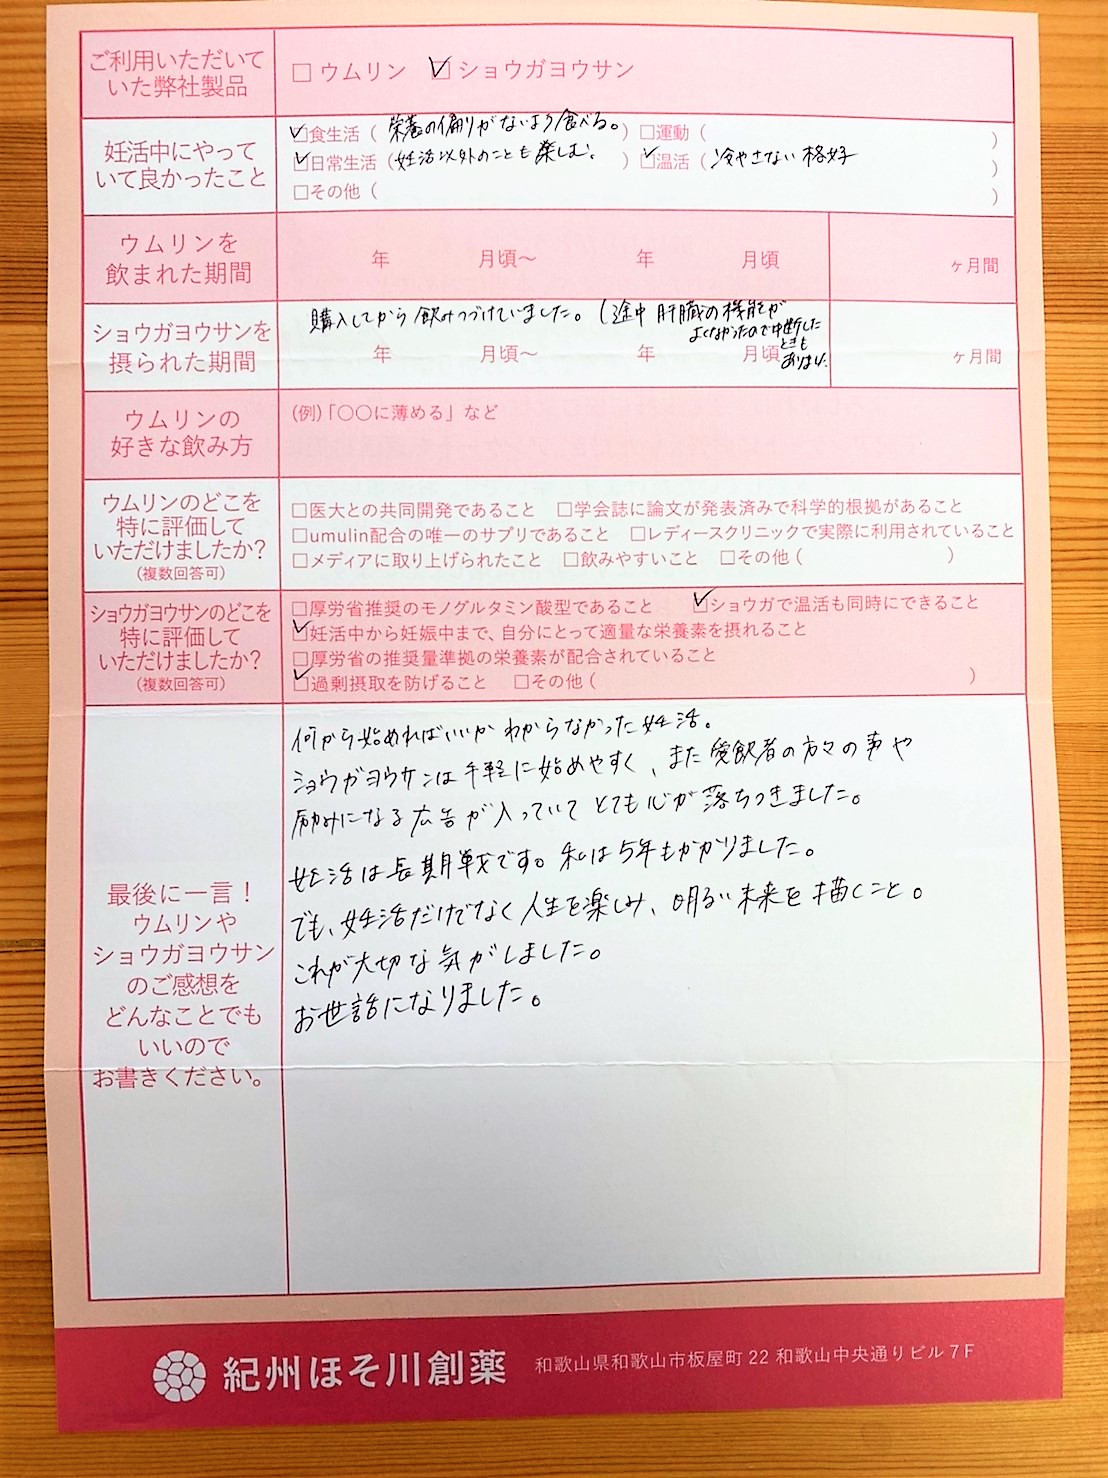 ご利用いただいて
いた弊社製品
□ウムリン ☑ショウガヨウサン
妊活中にやって
いて良かったこと
☑食生活（栄養の偏りがないよう食べる。）□運動（　）
☑日常生活（妊活以外のことも楽しむ。）☑温活（冷やさない格好）
□その他（　）
ウムリンを
飲まれた期間
年　月頃〜　年　月頃　ヶ月間
ショウガヨウサンを
摂られた期間
購入してから飲みつづけていました。(途中肝臓の機能が
よくなかったので中断した
ときも
あります。
年　月頃〜　年　月頃　ヶ月間
ウムリンの
好きな飲み方
(例)「〇〇に薄める」など
ウムリンのどこを
特に評価して
いただけましたか?
(複数回答可)
□医大との共同開発であること □学会誌に論文が発表済みで科学的根拠があること
□umulin配合の唯一のサプリであること □レディースクリニックで実際に利用されていること
□メディアに取り上げられたこと □飲みやすいこと □その他（　）
ショウガヨウサンのどこを
特に評価して
いただけましたか?
(複数回答可)
□厚労省推奨のモノグルタミン酸型であること ☑ショウガで温活も同時にできること
☑妊活中から妊娠中まで、自分にとって適量な栄養素を摂れること
□厚労省の推奨量準拠の栄養素が配合されていること
☑過剰摂取を防げること □その他（　）
最後に一言！
ウムリンや
ショウガヨウサン
のご感想を
どんなことでも
いいので
お書きください。
何から始めればいいかわからなかった妊活。
ショウガヨウサンは手軽に始めやすく、また愛飲者の方々の声や
励みになる広告が入っていてとても心が落ちつきました。
妊活は長期戦です。私は5年もかかりました。
でも、妊活だけでなく人生を楽しみ、明るい未来を描くこと。
これが大切な気がしました。
お世話になりました。
紀州ほそ川創薬
和歌山県和歌山市板屋町22 和歌山中央通りビル7F